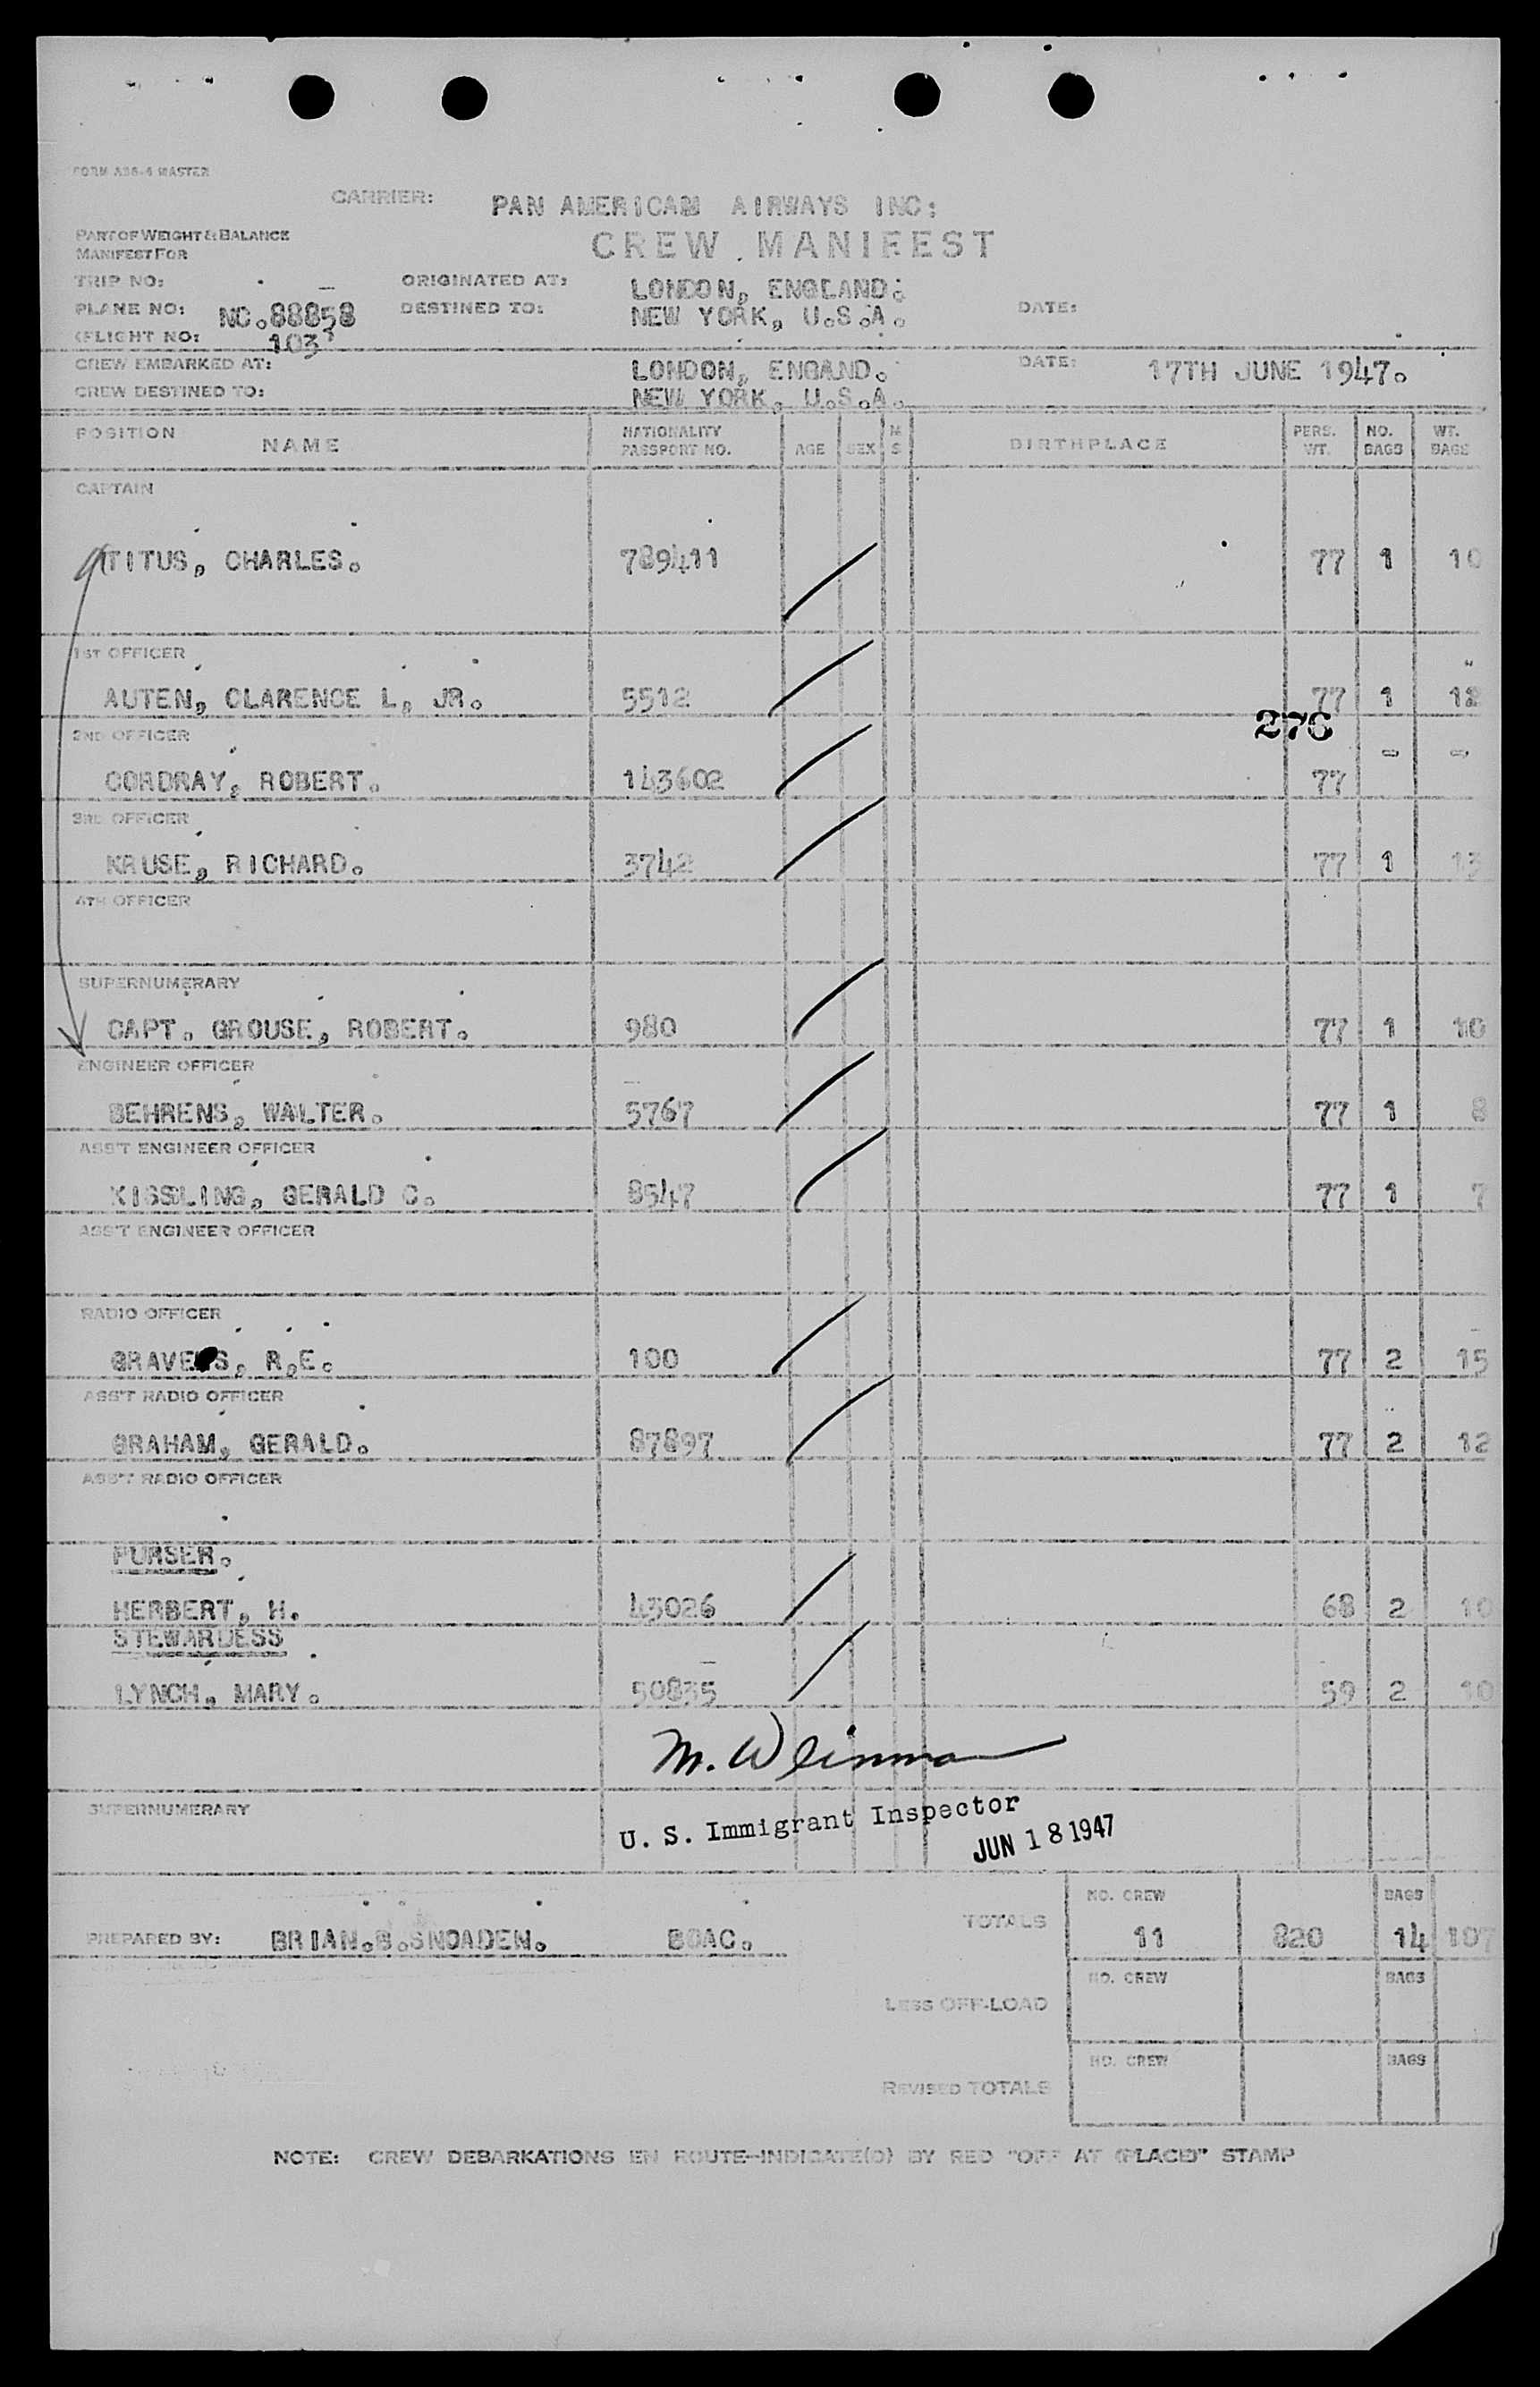 FORM A86-4 MASTER
CARRIER: PAN AMERICAN AIRWAYS INC:
PART OF WEIGHT & BALANCE
MANIFEST FOR
CREW MANIFEST
TRIP NO: ORIGINATED AT: LONDON, ENGLAND:
PLANE NO: NC.88858 DESTINED TO: NEW YORK, U.S.A. DATE:
(FLIGHT NO: 103
CREW EMBARKED AT: LONDON, ENGAND. DATE: 17TH JUNE 1947.
CREW DESTINED TO: NEW YORK, U.S.A.
POSITION NAME NATIONALITY PASSPORT NO. AGE SEX M S BIRTHPLACE PERS. WT. NO. BAGS WT. BAGS
CAPTAIN
TITUS, CHARLES. 789411 77 1 10
1ST OFFICER
AUTEN, CLARENCE L, JR. 5512 77 1 12
276
2ND OFFICER
CORDRAY, ROBERT. 143602 77 - -
3RD OFFICER
KRUSE, RICHARD. 3742 77 1 13
4TH OFFICER
SUPERNUMERARY
CAPT. GROUSE, ROBERT. 980 77 1 10
ENGINEER OFFICER
BEHRENS, WALTER. 5767 77 1 8
ASS'T ENGINEER OFFICER
KISSLING, GERALD C. 8547 77 1 7
ASS'T ENGINEER OFFICER
RADIO OFFICER
R,E. 100 77 2 15
ASS'T RADIO OFFICER
GRAHAM, GERALD. 87897 77 2 12
ASS'T RADIO OFFICER
PURSER.
HERBERT, H. 43026 68 2 10
STEWARDESS
LYNCH, MARY. 50835 59 2 10
M. Weinman
SUPERNUMERARY
U. S. Immigrant Inspector
JUN 18 1947
PREPARED BY: BRIAN.B.SNOADEN. BOAC.
TOTALS NO. CREW 11 820 BAGS 14 107
LESS OFF-LOAD NO. CREW BAGS
REVISED TOTALS NO. CREW BAGS
NOTE: CREW DEBARKATIONS EN ROUTE-INDICATE(D) BY RED "OFF AT (PLACE)" STAMP